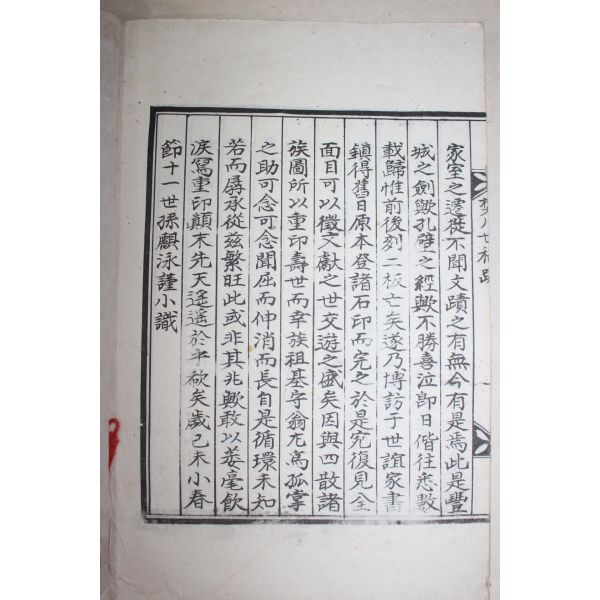 家室之遷徙不聞文蹟之有無今有是焉此是豐
城之劍歟孔壁之經歟不勝喜泣卽日偕往悉數
載歸惟前後刻二板亡矣遂乃博訪于世誼家書
鎖得舊日原本登諸石印而完之於是宛復見全
面目可以徵文獻之世交遊之盛矣因與四散諸
族圖所以重印壽世而幸族祖基守翁尤爲孤掌
之助可念可念聞屈而伸消而長自是循環未知
若而孱承從玆繁旺此或非其兆歟敢以蔆毫飮
淚寫重印顚末先天遙遙於乎欷矣歲己未小春
節十一世孫麒泳謹小識
八世稿跋